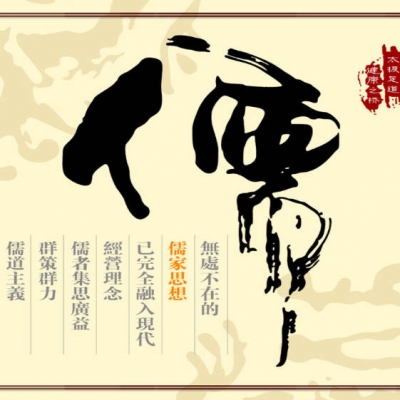 儒
太极足道
健康之桥
無處不在的
儒家思想
已完全融入現代
經營理念
儒者集思廣益
群策群力
儒道主義